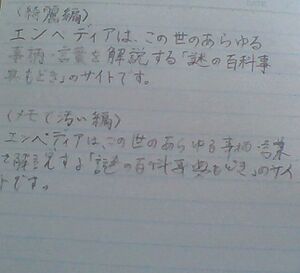 (綺麗編)
エンペディアは、この世のあらゆる
事柄・言葉を解説する「謎の百科事
典もどき」のサイトです。
(メモで汚い編)
エンペディアは、この世のあらゆる事柄・言葉
を解説する「謎の百科事典もどき」のサイ
トです。